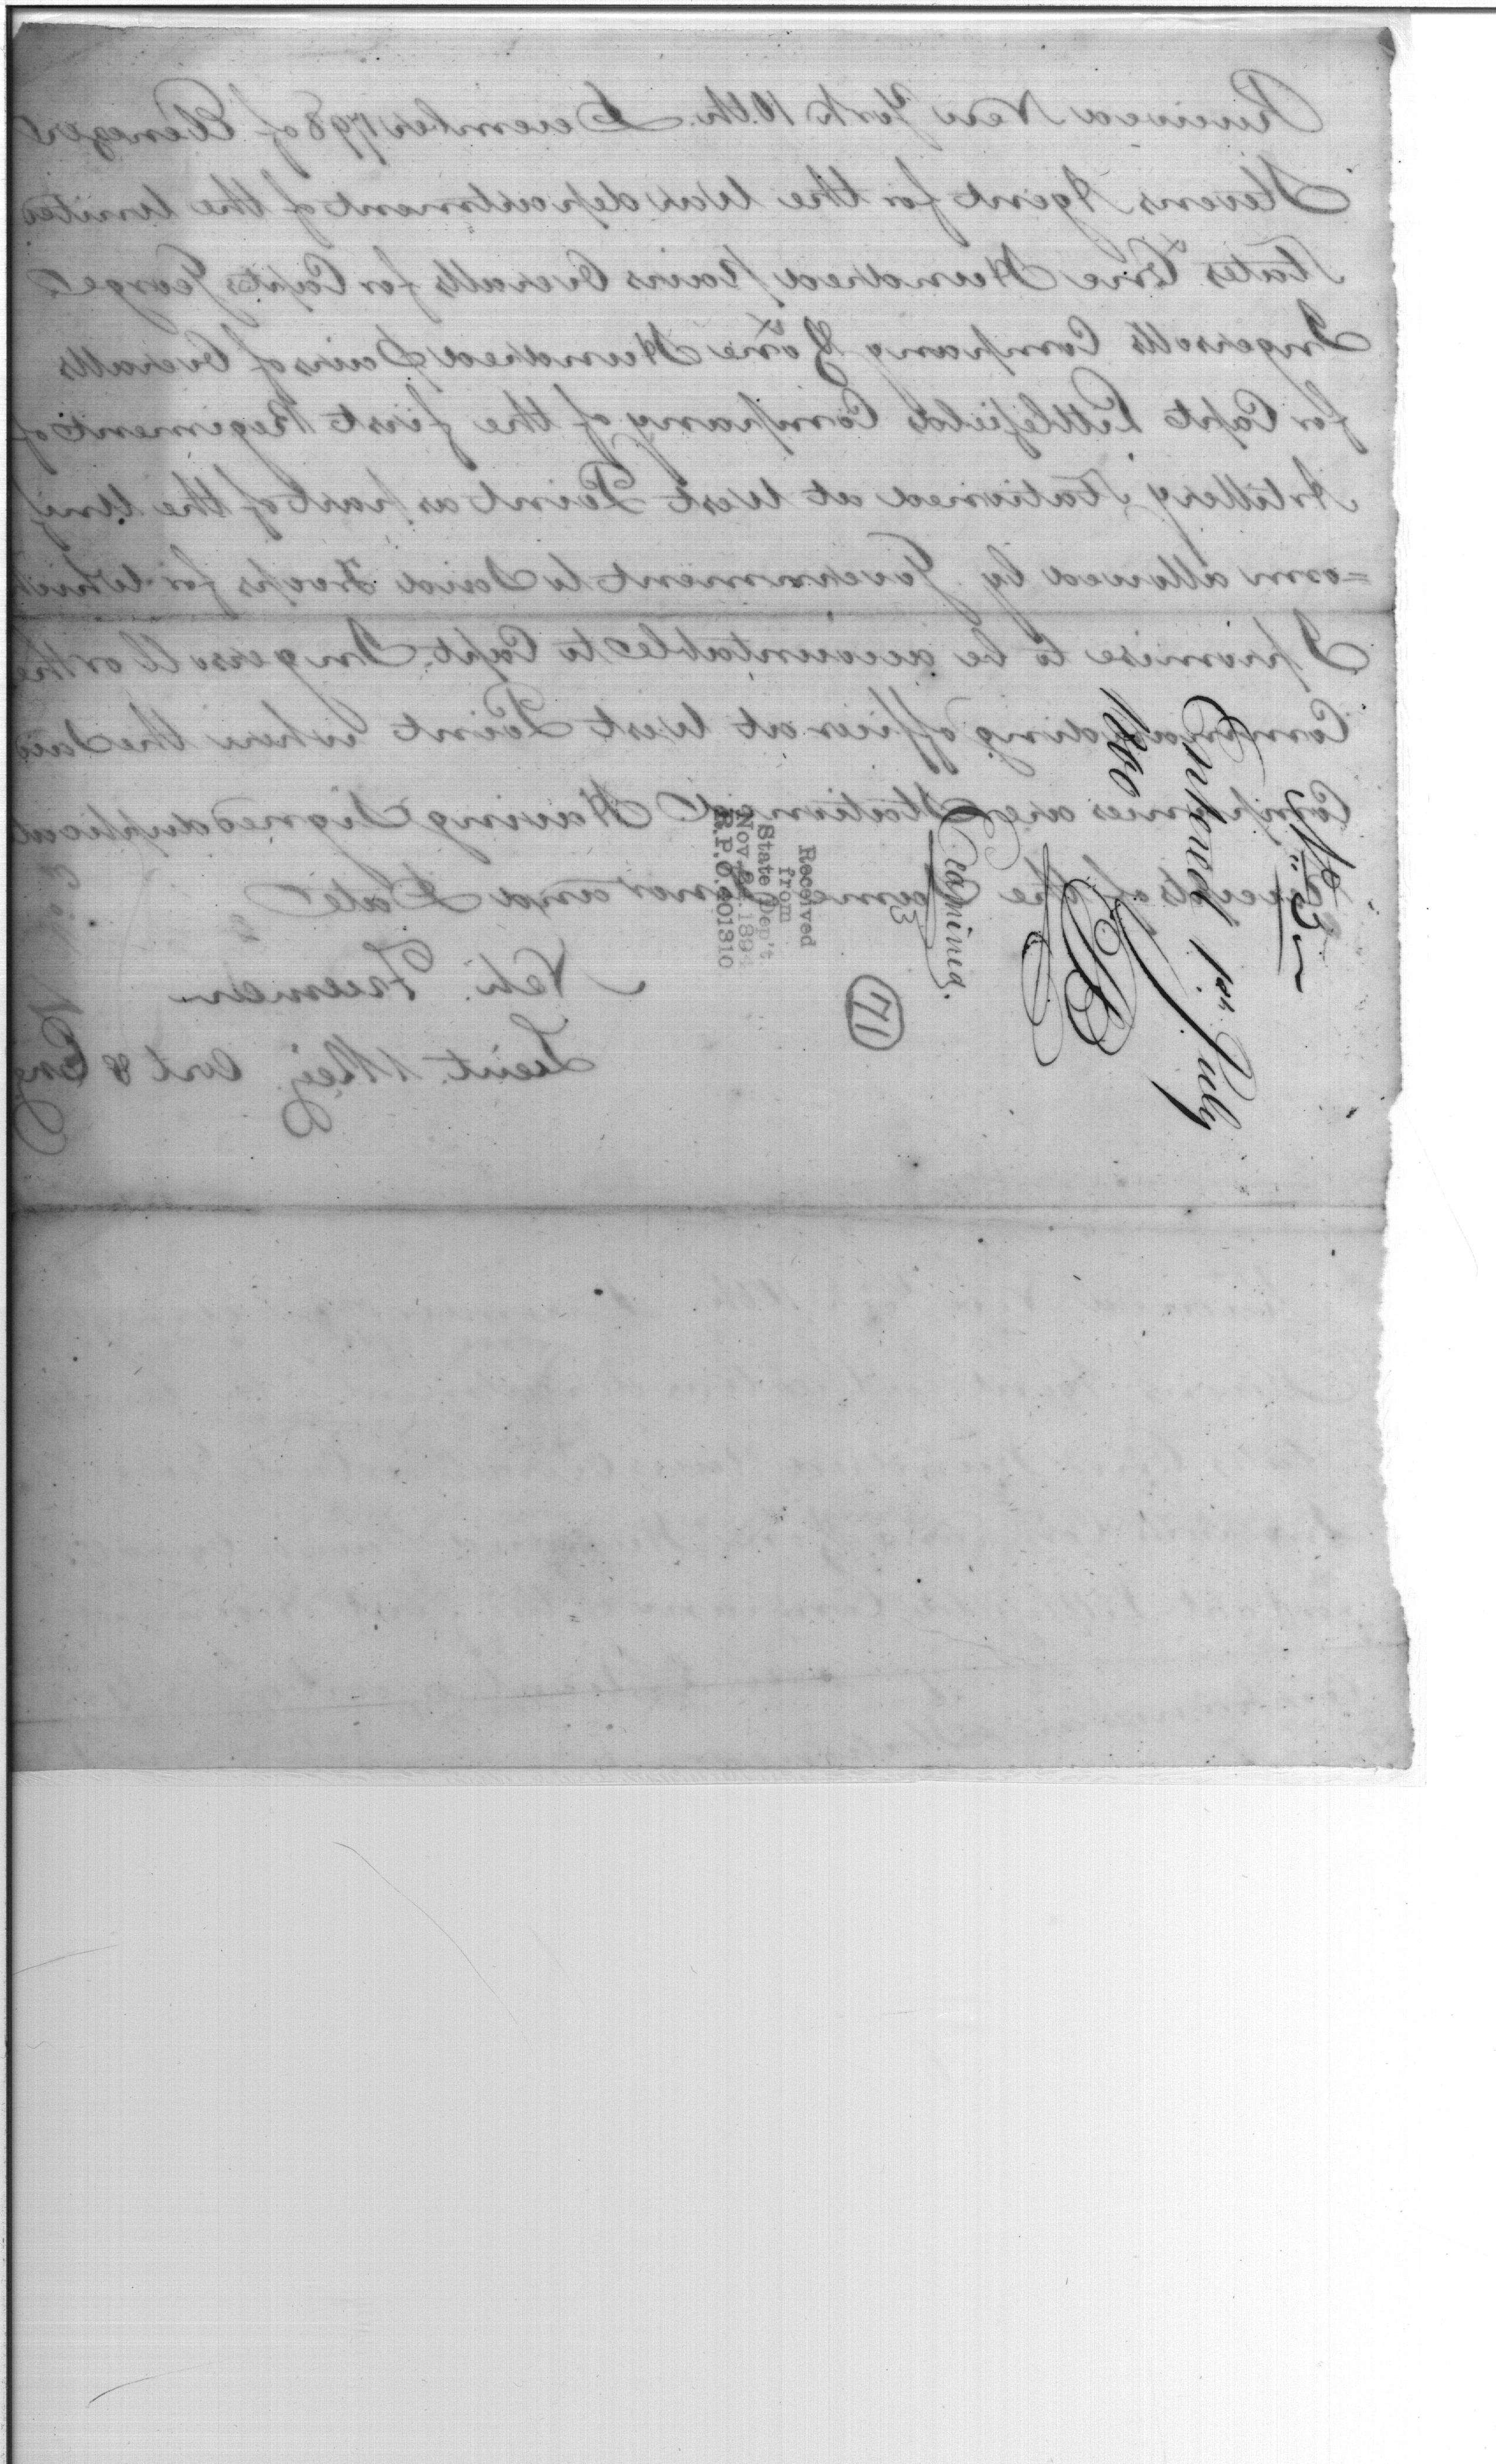 Received New York 10th December 1798 of Ebenezer
Stevens Agent for the War department of the United
States One Hundred pairs Overalls for Capt George
Ingersolls Company & One Hundred Pairs of Overalls
for Capt Littlefields Company of the first Regiment of
Artillery Stationed at West Point as part of the Unif
=orm allowed by Government to Said Troops for Which
I promise to be accountable to Capt. Ingersoll or the
Commanding officer at West Point where the Said
Companies are Stationed Having Signed duplicate
of the Same and Date
Neh. Freeman
Lieut. 1 Reg. Art & Eng
No. 3
Entered 1st July
1800
Examined.
3
71
Received
from
State Dep't.
Nov. 1894
R.P.O. 401310